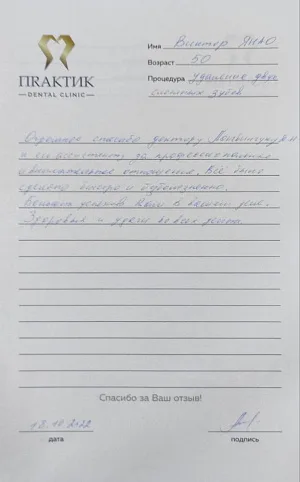 ПRAKTИК
— DENTAL CLINIC —
Имя Винтер Янно
Возраст 50
Процедура Удаление двух
сложных зубов
Огромное спасибо доктору
и его ассистенту за профессионализм
и внимательное отношение. Всё было
сделано быстро и безболезненно.
Больших успехов Вам в вашем деле.
Здоровья и удачи во всех делах.
Спасибо за Ваш отзыв!
18.10.2022
дата
подпись